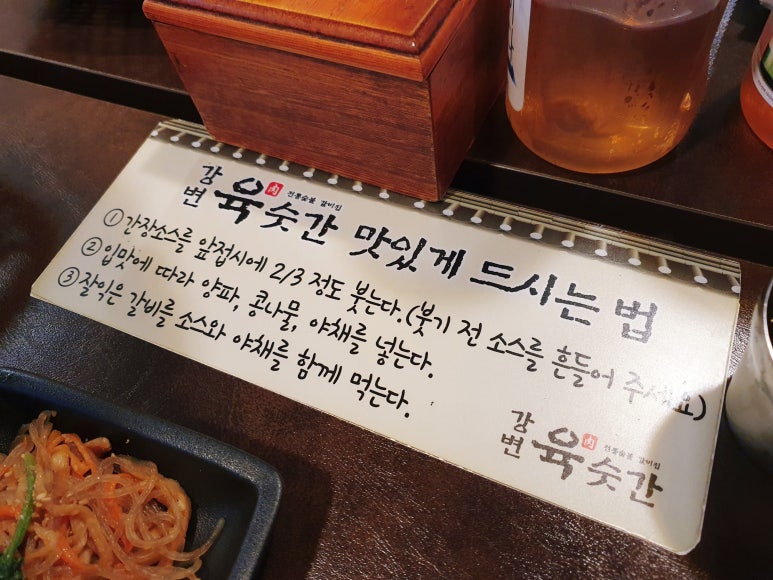 강변 육숯간 肉 전통숯불 갈비집 맛있게 드시는 법
① 간장소스를 앞접시에 2/3 정도 붓는다.(붓기 전 소스를 흔들어 주세요)
② 입맛에 따라 양파, 콩나물, 야채를 넣는다.
③ 잘익은 갈비를 소스와 야채를 함께 먹는다.
강변 육숯간 肉 전통숯불 갈비집